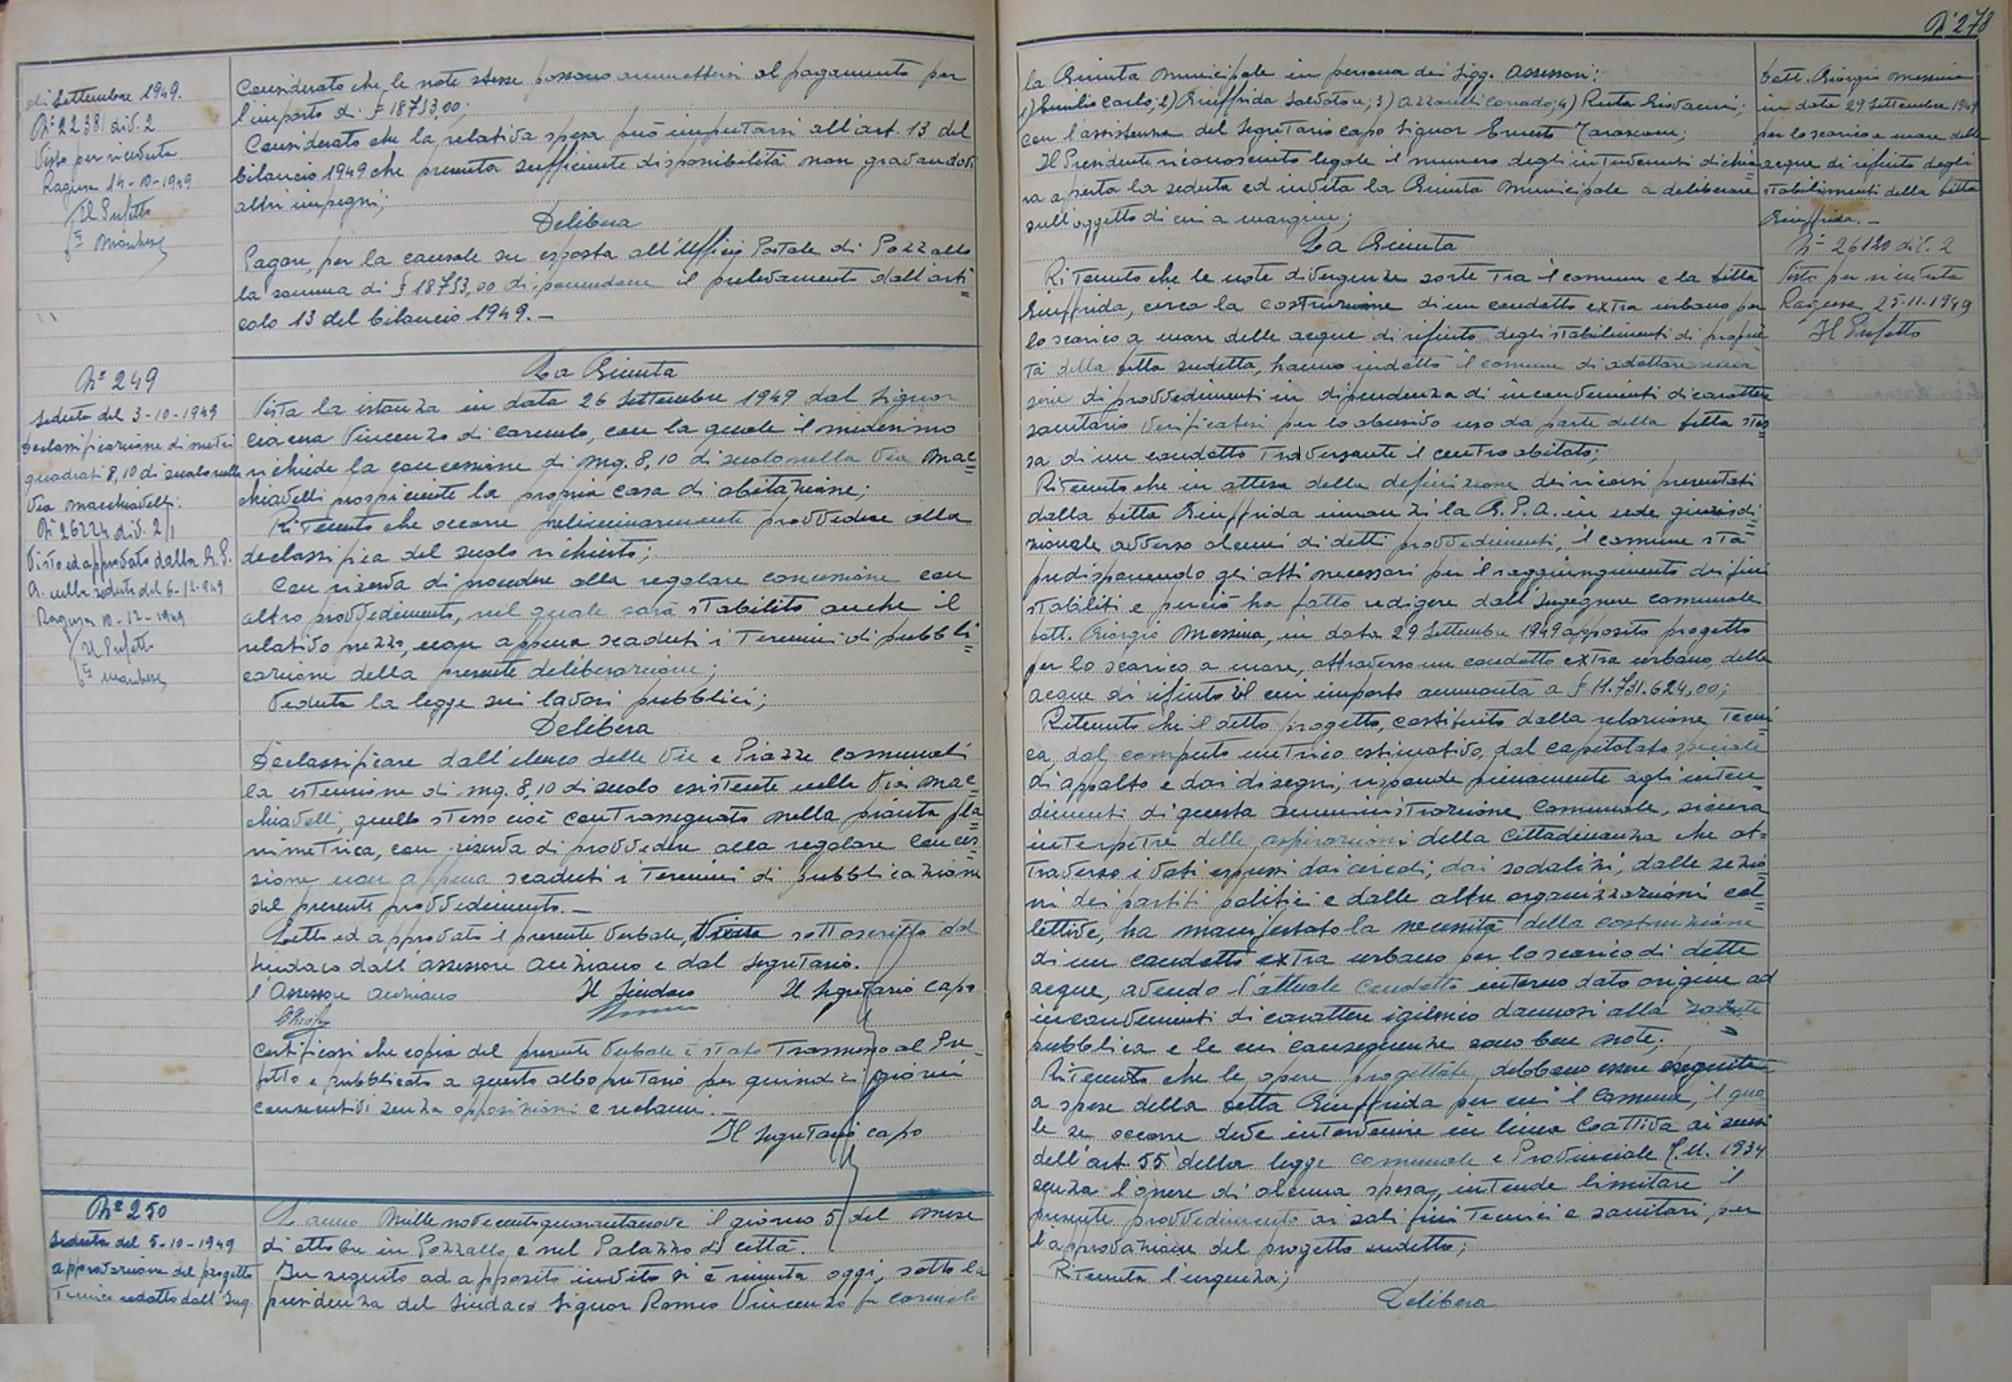 di Settembre 1949.
N° 22381 div. 2
Visto per ricevuta
Ragusa 14-10-1949
Il Prefetto
Considerato che le note stesse possono ammettersi al pagamento per
l'importo di £ 18753,00;
Considerato che la relativa spesa può imputarsi all'art. 13 del
bilancio 1949 che presenta sufficiente disponibilità non gravandosi
altri impegni;
Delibera
Pagare, per la causale su esposta all'Ufficio Postale di Pozzallo
la somma di £ 18753,00 disponendone il prelevamento dall'arti=
colo 13 del bilancio 1949. —
N° 249
Seduta del 3-10-1949
Declassificazione di metri
quadrati 8,10 di suolo nella
Via Macchiavelli.
N° 26224 div. 2/1
Visto ed approvato dalla G. P.
A. nella seduta del 6-12-949
Ragusa 10-12-1949
Il Prefetto
La Giunta
Vista la istanza in data 26 Settembre 1949 dal Signor
Vincenzo di Carmelo, con la quale il medesimo
richiede la concessione di mq. 8,10 di suolo nella Via Mac=
chiavelli prospiciente la propria casa di abitazione;
Ritenuto che occorre preliminarmente provvedere alla
declassifica del suolo richiesto;
Con riserva di procedere alla regolare concessione con
altro provvedimento, nel quale sarà stabilito anche il
relativo prezzo, non appena scaduti i termini di pubbli=
cazione della presente deliberazione;
Veduta la legge sui lavori pubblici;
Delibera
Declassificare dall'elenco delle Vie e Piazze Comunali
la estensione di mq. 8,10 di suolo esistente nella Via Mac=
chiavelli, quello stesso cioè contrassegnato nella pianta pla=
nimetrica, con riserva di provvedere alla regolare conces=
sione non appena scaduti i termini di pubblicazione
del presente provvedimento. —
Letto ed approvato il presente verbale, viene sottoscritto dal
Sindaco dall'assessore anziano e dal Segretario.
l'Assessore anziano Il Sindaco Il Segretario capo
Certificasi che copia del presente verbale è stato trasmesso al Pre=
fetto e pubblicato a questo albo pretorio per quindici giorni
consecutivi senza opposizioni e reclami. —
Il Segretario capo
N° 250
Seduta del 5-10-1949
approvazione del progetto
tecnico redatto dall'Ing.
L'anno millenovecentoquarantanove il giorno 5 del mese
di ottobre in Pozzallo e nel Palazzo di città.
In seguito ad apposito invito si è riunita oggi, sotto la
presidenza del Sindaco Signor Romeo Vincenzo fu Carmelo
N° 278
la Giunta Municipale in persona dei Sigg. Assessori:
1) Emilio Carlo; 2) Giuffrida Salvatore; 3) Azzarelli Corrado; 4) Ruta Giovanni;
con l'assistenza del Segretario capo Signor Ernesto
Il Presidente riconosciuto legale il numero degli intervenuti dichia=
ra aperta la seduta ed invita la Giunta Municipale a deliberare
sull'oggetto di cui a margine;
La Giunta
Ritenuto che le note divergenze sorte tra il comune e la ditta
Giuffrida, circa la costruzione di un condotto extra urbano per
lo scarico a mare delle acque di rifiuto degli stabilimenti di proprie=
tà della ditta sudetta, hanno indotto il comune di adottare una
serie di provvedimenti in dipendenza di inconvenienti di carattere
sanitario verificatesi per lo abusivo uso da parte della ditta stes=
sa di un condotto traversante il centro abitato;
Ritenuto che in attesa della definizione dei ricorsi presentati
dalla ditta Giuffrida innanzi la G. P. A. in sede giurisdi=
zionale avverso alcuni di detti provvedimenti, il comune sta
predisponendo gli atti necessari per il raggiungimento dei fini
stabiliti e perciò ha fatto redigere dall'Ingegnere comunale
dott. Giorgio Messina, in data 29 Settembre 1949 apposito progetto
per lo scarico a mare, attraverso un condotto extra urbano, delle
acque di rifiuto il cui importo ammonta a £ 11.731.624,00;
Ritenuto che il detto progetto, costituito dalla relazione tecni=
ca, dal computo metrico estimativo, dal capitolato speciale
di appalto e dai disegni, risponde pienamente agli inten=
dimenti di questa amministrazione Comunale, sicura
interpetre delle aspirazioni della cittadinanza che at=
traverso i voti espressi dai circoli, dai sodalizi, dalle sezio=
ni dei partiti politici e dalle altre organizzazioni col=
lettive, ha manifestato la necessità della costruzione
di un condotto extra urbano per lo scarico di dette
acque, avendo l'attuale condotto interno dato origine ad
inconvenienti di carattere igienico dannosi alla salute
pubblica e le cui conseguenze sono ben note;
Ritenuto che le opere progettate, debbano essere eseguite
a spese della ditta Giuffrida per cui il Comune, il qua=
le se occorre deve intervenire in linea coattiva ai sensi
dell'art. 55 della legge comunale e Provinciale T.U. 1934
senza l'onere di alcuna spesa, intende limitare il
presente provvedimento ai soli fini tecnici e sanitari, per
l'approvazione del progetto sudetto;
Ritenuta l'urgenza;
Delibera
dott. Giorgio Messina
in data 29 Settembre 1949
per lo scarico a mare delle
acque di rifiuto degli
stabilimenti della ditta
Giuffrida. —
N° 26120 div. 2
Visto per ricevuta
Ragusa 25-11-1949
Il Prefetto